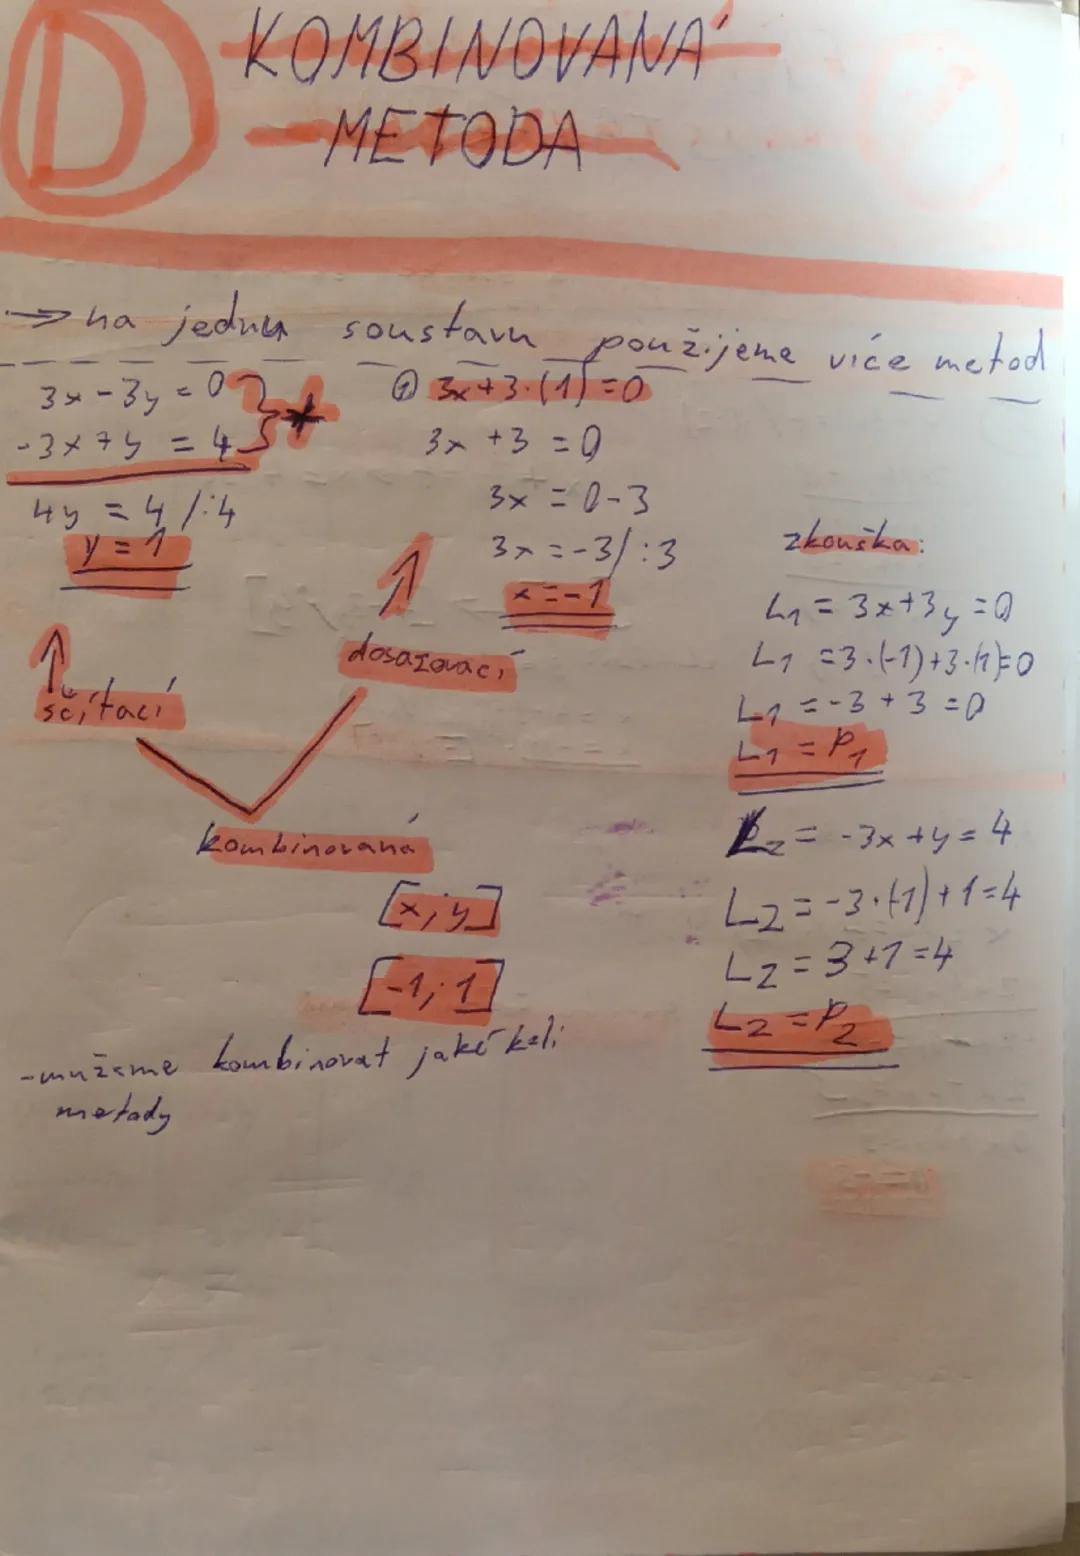 D
KOMBINOVANÁ
METODA
→ na jednu soustavu použijeme více metod
3x-3y=0
-3x+y=4
4y=4/:4
y=1
① 3x+3·(1)=0
3x+3=0
3x=0-3
3x=-3/:3
x=-1
sčítací
dosazovací
kombinovaná
[x;y]
[-1;1]
-můžeme kombinovat jaké koli
metody
zkouška:
L1=3x+3y=0
L1=3·(-1)+3·(1)=0
L1=-3+3=0
L1=P1
L2=-3x+y=4
L2=-3·(-1)+1=4
L2=3+1=4
L2=P2